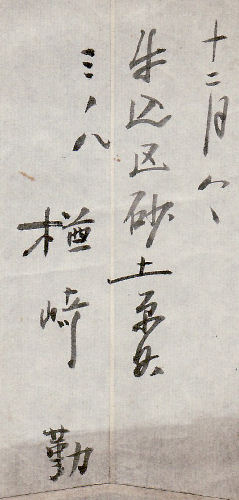 十二月八日
牛込区砂土原町
三ノ八
楢崎
勤